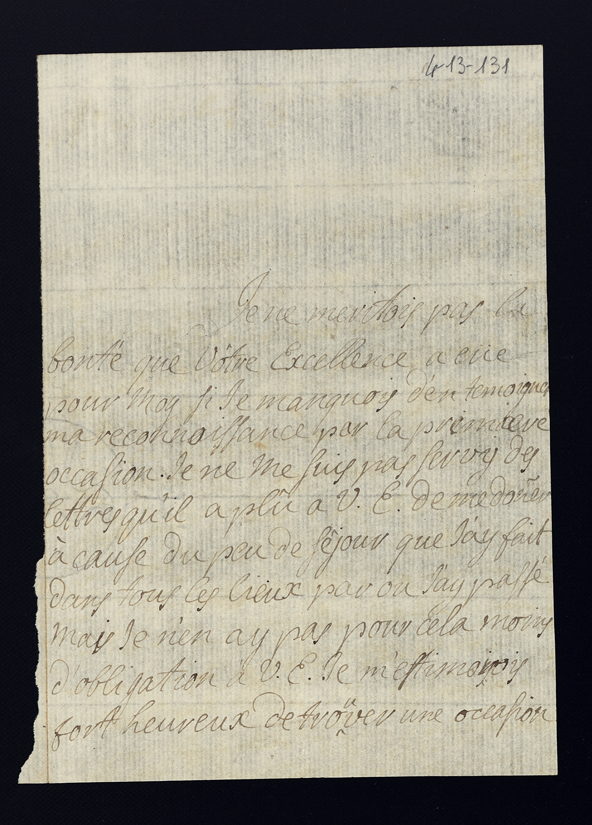 4-13-131
Je ne meritois pas la
bonté que Vôtre Excellence a eüe
pour Moy si Je manquois d'en temoigner
ma reconnoissance par la premiere
occasion. Je ne me suis pas servy des
lettres qu'il a plû a V. E. de me doñer
à cause du peu de séjour que J'ay fait
dans tous les lieux par ou J'ay passé
Mais Je n'en ay pas pour cela moins
d'obligation a V. E. Je m'estimerois
fort heureux de trouver une occasion